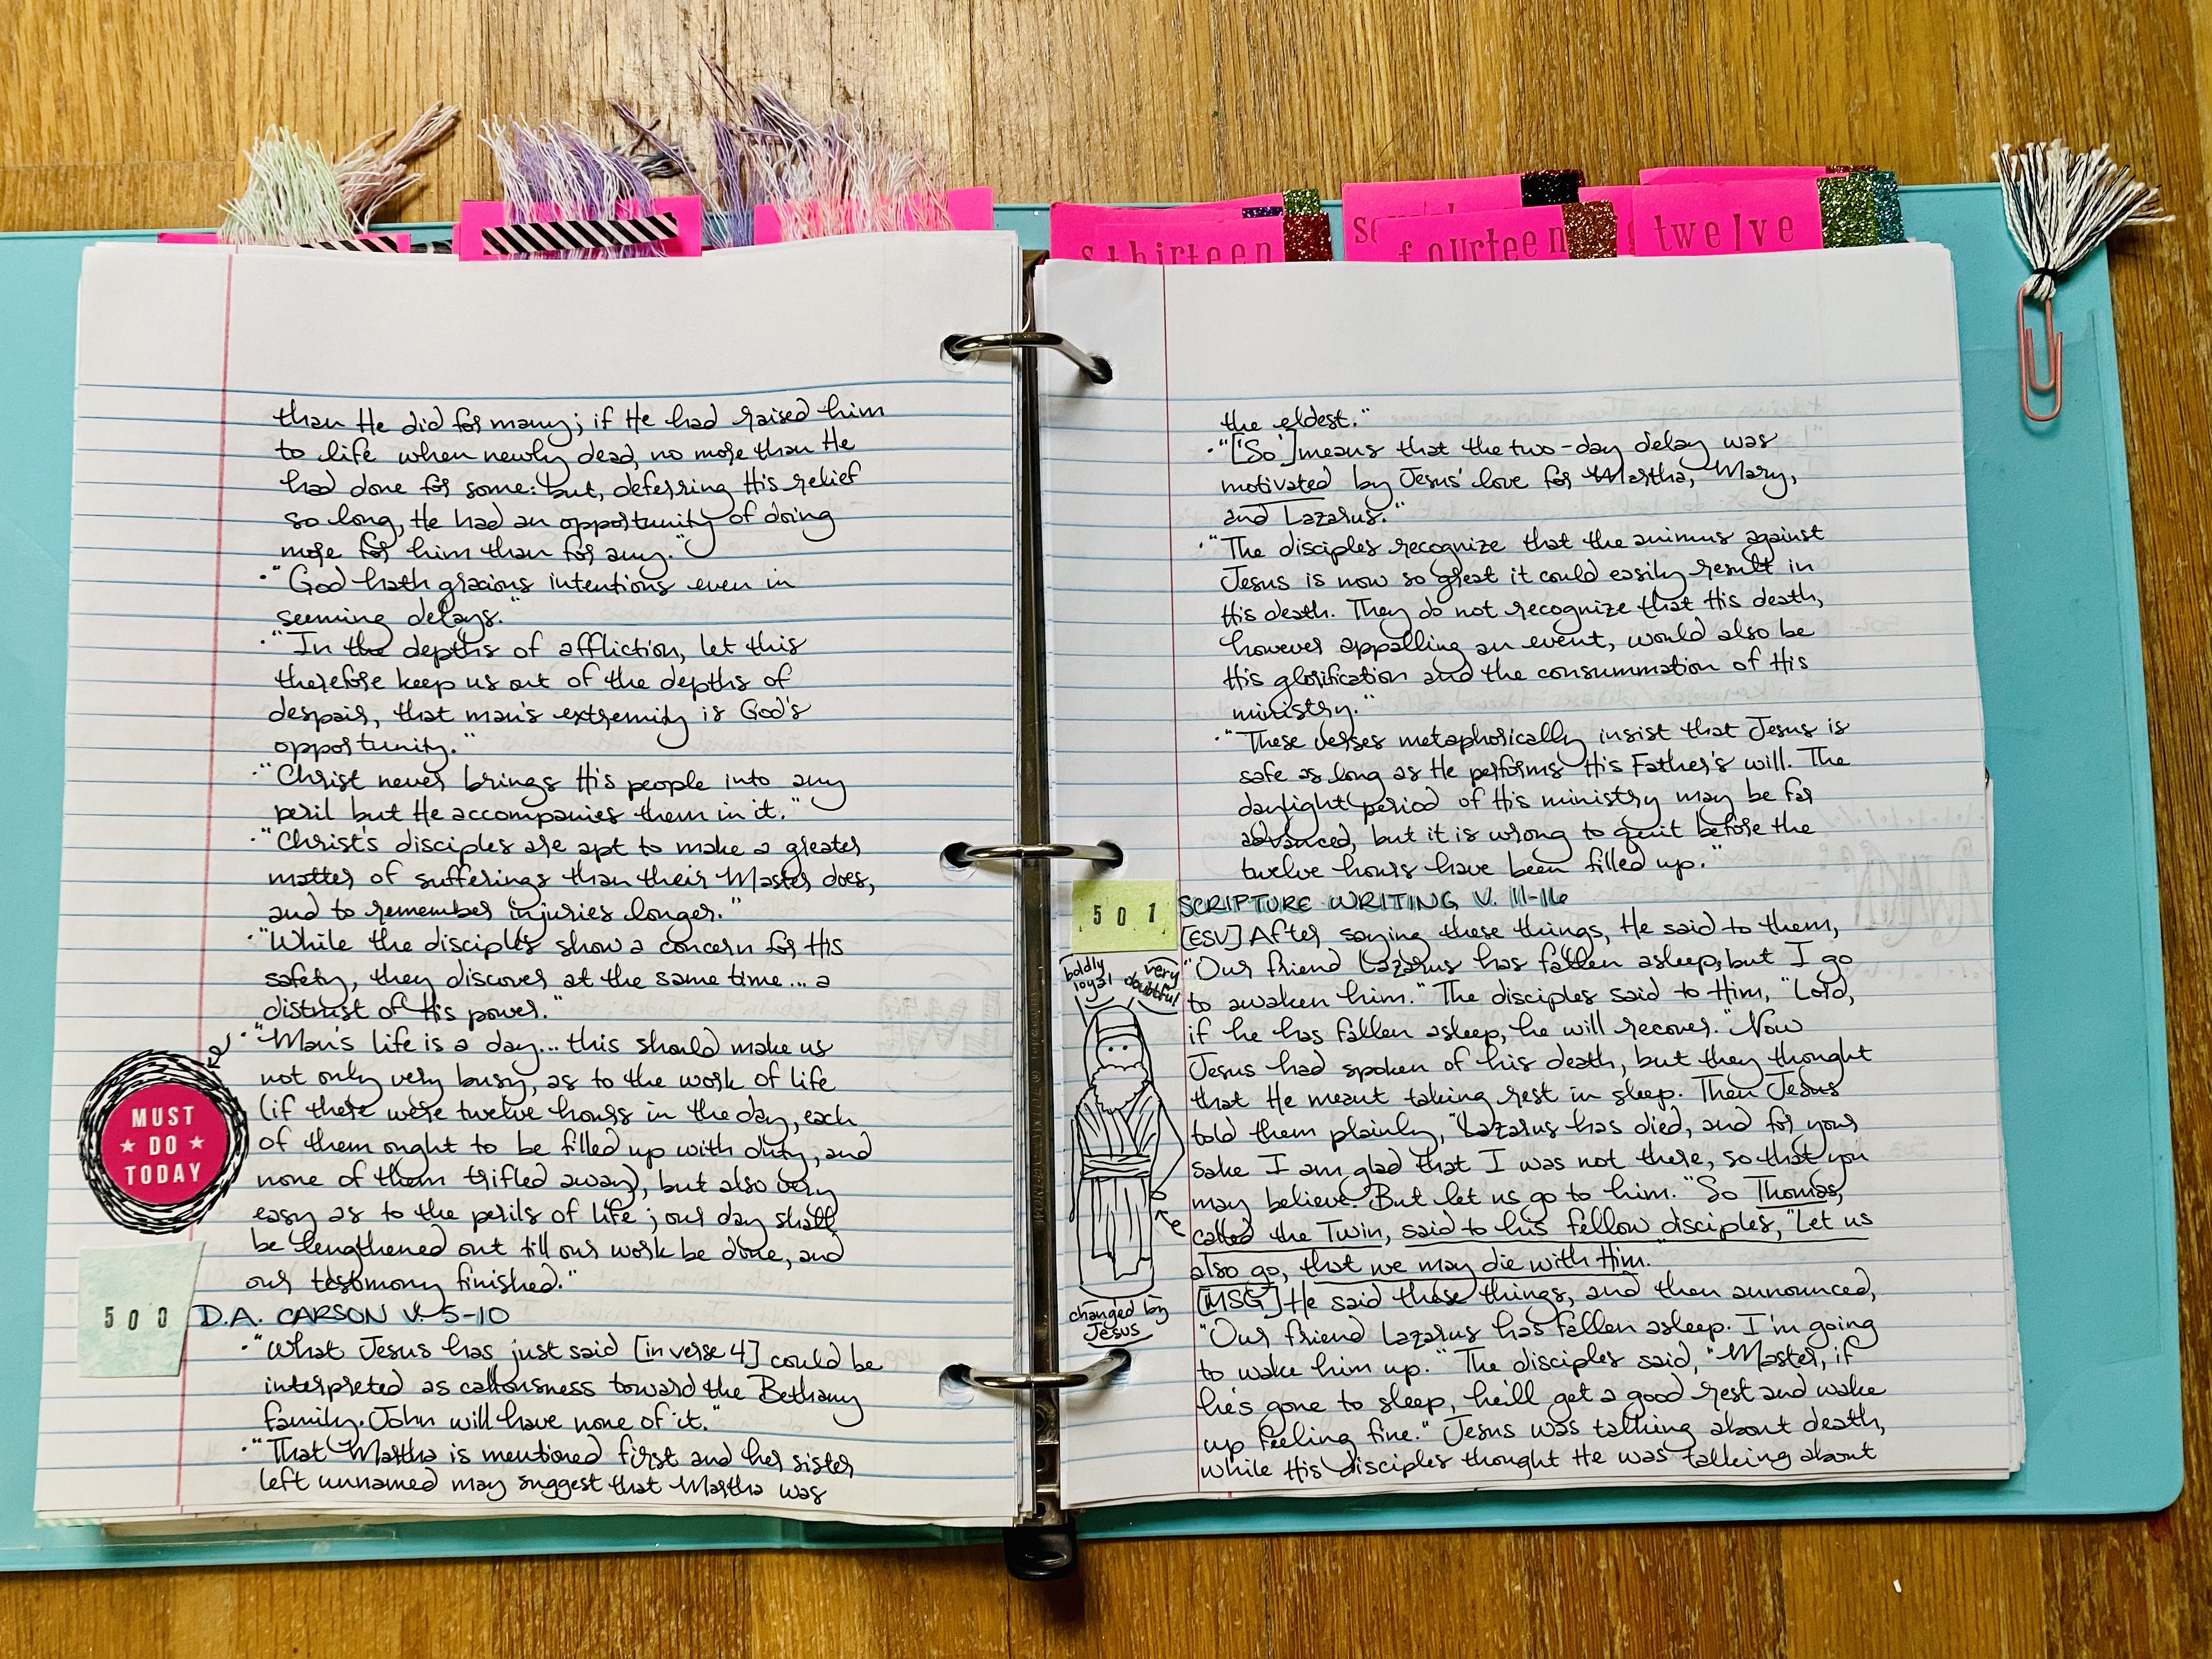 thirteen
fourteen
twelve
than He did for many; if He had raised him
to life when newly dead, no more than He
had done for some: but, deferring His relief
so long, He had an opportunity of doing
more for him than for any."
·"God hath gracious intentions even in
seeming delays."
·"In the depths of affliction, let this
therefore keep us out of the depths of
despair, that man's extremity is God's
opportunity."
·"Christ never brings His people into any
peril but He accompanies them in it."
·"Christ's disciples are apt to make a greater
matter of sufferings than their Master does,
and to remember injuries longer."
·"While the disciples show a concern for His
safety, they discover at the same time... a
distrust of His power."
·"Man's life is a day... this should make us
not only very busy, as to the work of life
(if there were twelve hours in the day, each
of them ought to be filled up with duty, and
none of them trifled away), but also very
easy as to the perils of life; our day shall
be lengthened out till our work be done, and
our testimony finished."
MUST
DO
TODAY
500
D.A. CARSON V. 5-10
·"What Jesus has just said [in verse 4] could be
interpreted as callousness toward the Bethany
family. John will have none of it."
·"That Martha is mentioned first and her sister
left unnamed may suggest that Martha was
the eldest."
·"['So'] means that the two-day delay was
motivated by Jesus' love for Martha, Mary,
and Lazarus."
·"The disciples recognize that the animus against
Jesus is now so great it could easily result in
His death. They do not recognize that His death,
however appalling an event, would also be
His glorification and the consummation of His
ministry."
·"These verses metaphorically insist that Jesus is
safe as long as He performs His Father's will. The
daylight period of His ministry may be far
advanced, but it is wrong to quit before the
twelve hours have been filled up."
501
SCRIPTURE WRITING V. 11-16
[ESV] After saying these things, He said to them,
"Our friend Lazarus has fallen asleep, but I go
to awaken him." The disciples said to Him, "Lord,
if he has fallen asleep, he will recover." Now
Jesus had spoken of his death, but they thought
that He meant taking rest in sleep. Then Jesus
told them plainly, "Lazarus has died, and for your
sake I am glad that I was not there, so that you
may believe. But let us go to him." So Thomas,
called the Twin, said to his fellow disciples, "Let us
also go, that we may die with Him."
boldly
loyal
very
doubtful
changed by
Jesus
[MSG] He said these things, and then announced,
"Our friend Lazarus has fallen asleep. I'm going
to wake him up." The disciples said, "Master, if
he's gone to sleep, he'll get a good rest and wake
up feeling fine." Jesus was talking about death,
while His disciples thought He was talking about